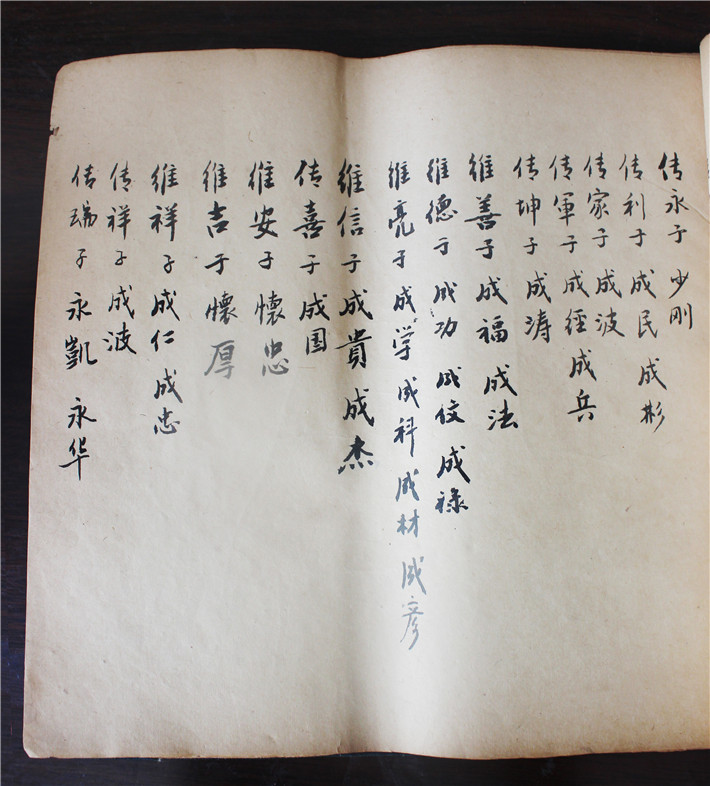 传永子 少刚
传利子 成民 成彬
传家子 成波
传軍子 成經 成兵
传坤子 成涛
維善子 成福 成法
維德子 成功 成俊 成禄
維亮子 成学 成科 成材 成彦
維信子 成貴 成杰
传喜子 成国
維安子 懷忠
維吉子 懷厚
維祥子 成仁 成忠
传祥子 成波
传瑞子 永凱 永华